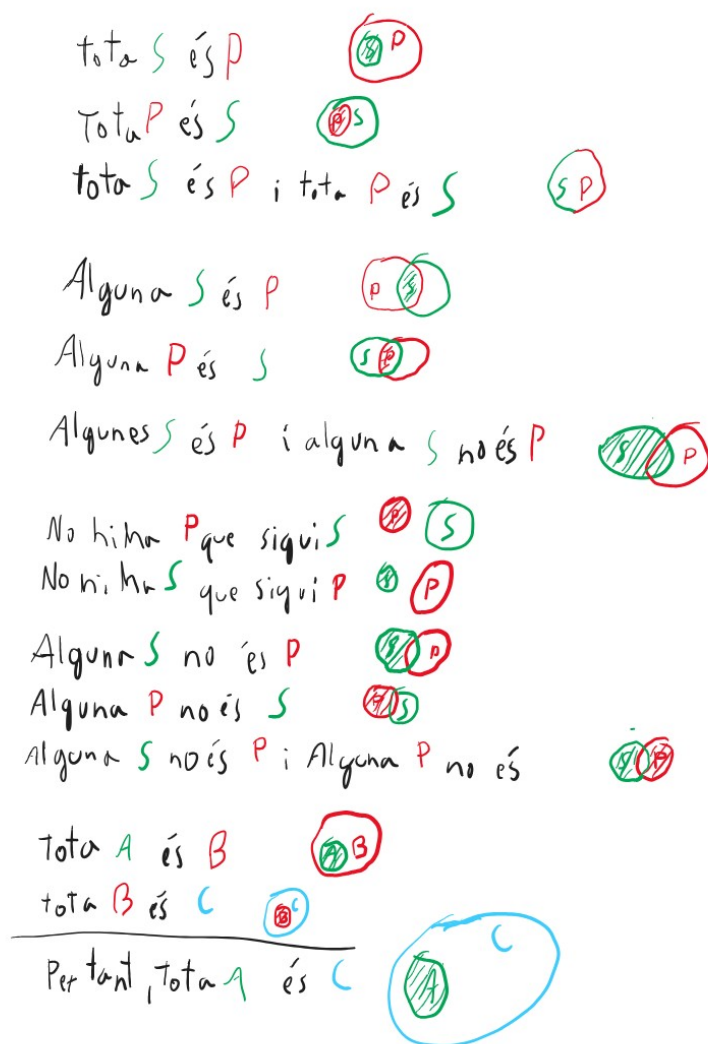 tota S és P S P
Tota P és S P S
tota S és P i tota P és S S P
Alguna S és P P S
Alguna P és S S P
Algunes S és P i alguna S no és P S P
No hi ha P que sigui S P S
No hi ha S que sigui P S P
Alguna S no és P S P
Alguna P no és S P S
Alguna S no és P i Alguna P no és S P
tota A és B A B
tota B és C B C
Per tant, Tota A és C A C